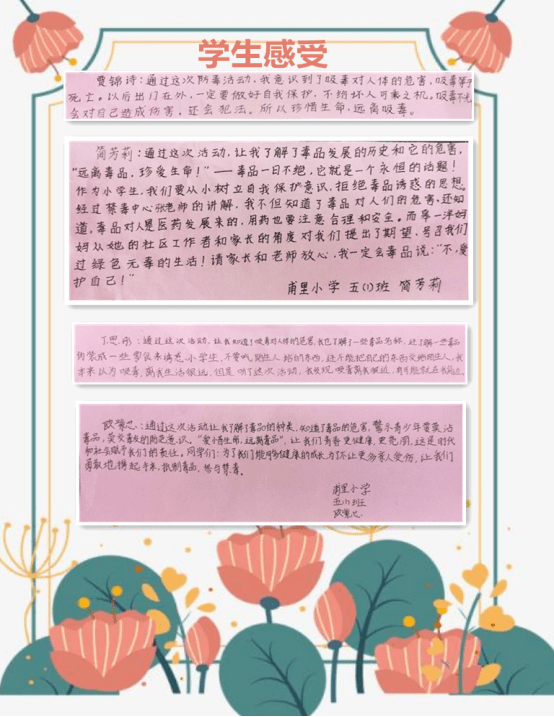 学生感受
贾锦诗：通过这次防毒活动，我意识到了吸毒对人体的危害，吸毒等于
死亡。以后出门在外，一定要做好自我保护，不给坏人可乘之机。吸毒不光
会对自己造成伤害，还会犯法。所以珍惜生命，远离吸毒。
简芳莉：通过这次活动，让我了解了毒品发展的历史和它的危害，
“远离毒品，珍爱生命！”——毒品一日不绝，它就是一个永恒的话题！
作为小学生，我们要从小树立自我保护意识，拒绝毒品诱惑的思想。
经过禁毒中心张老师的讲解，我不但知道了毒品对人们的危害，还知
道，毒品对人是医药发展来的，用药也要注意合理和安全。而李一洋妈
妈从她的社区工作者和家长的角度对我们提出了期望，号召我们
过绿色无毒的生活！请家长和老师放心，我一定会毒品说：“不，爱
护自己！”
甫里小学 五(1)班 简芳莉
通过这次活动，让我知道了吸毒对人体的危害，我也了解了一些毒品名称，还了解一些毒品
伪装成一些零食来诱惑小学生，不要吃陌生人给的东西，还不能把自己的东西交给陌生人，我
本来以为吸毒，离我生活很远，但是听了这次活动，我发现吸毒离我很近，有可能就在我身边。
通过这次活动让我了解了毒品的种类，知道了毒品的危害，警示青少年要禁沾
毒品，英交毒友的防范意识。“爱惜生命，远离毒品”，让我们青春更健康，更亮丽，这是时代
和社会赋予我们的责任。同学们：为了我们能够健康的成长，为了不让更多家人受伤，让我们
勇敢地携起手来，抵制毒品，参与禁毒。
甫里小学
五(1)班